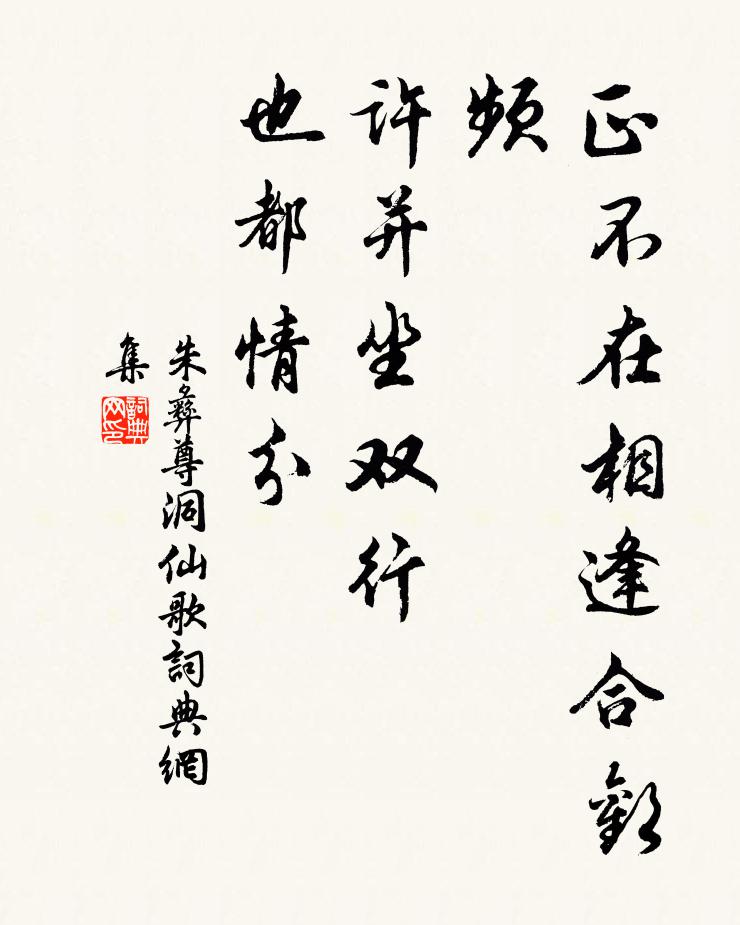 正不在相逢合歡
頻
許并坐双行
也都情分
朱彝尊洞仙歌詞典網
集
詞典网印